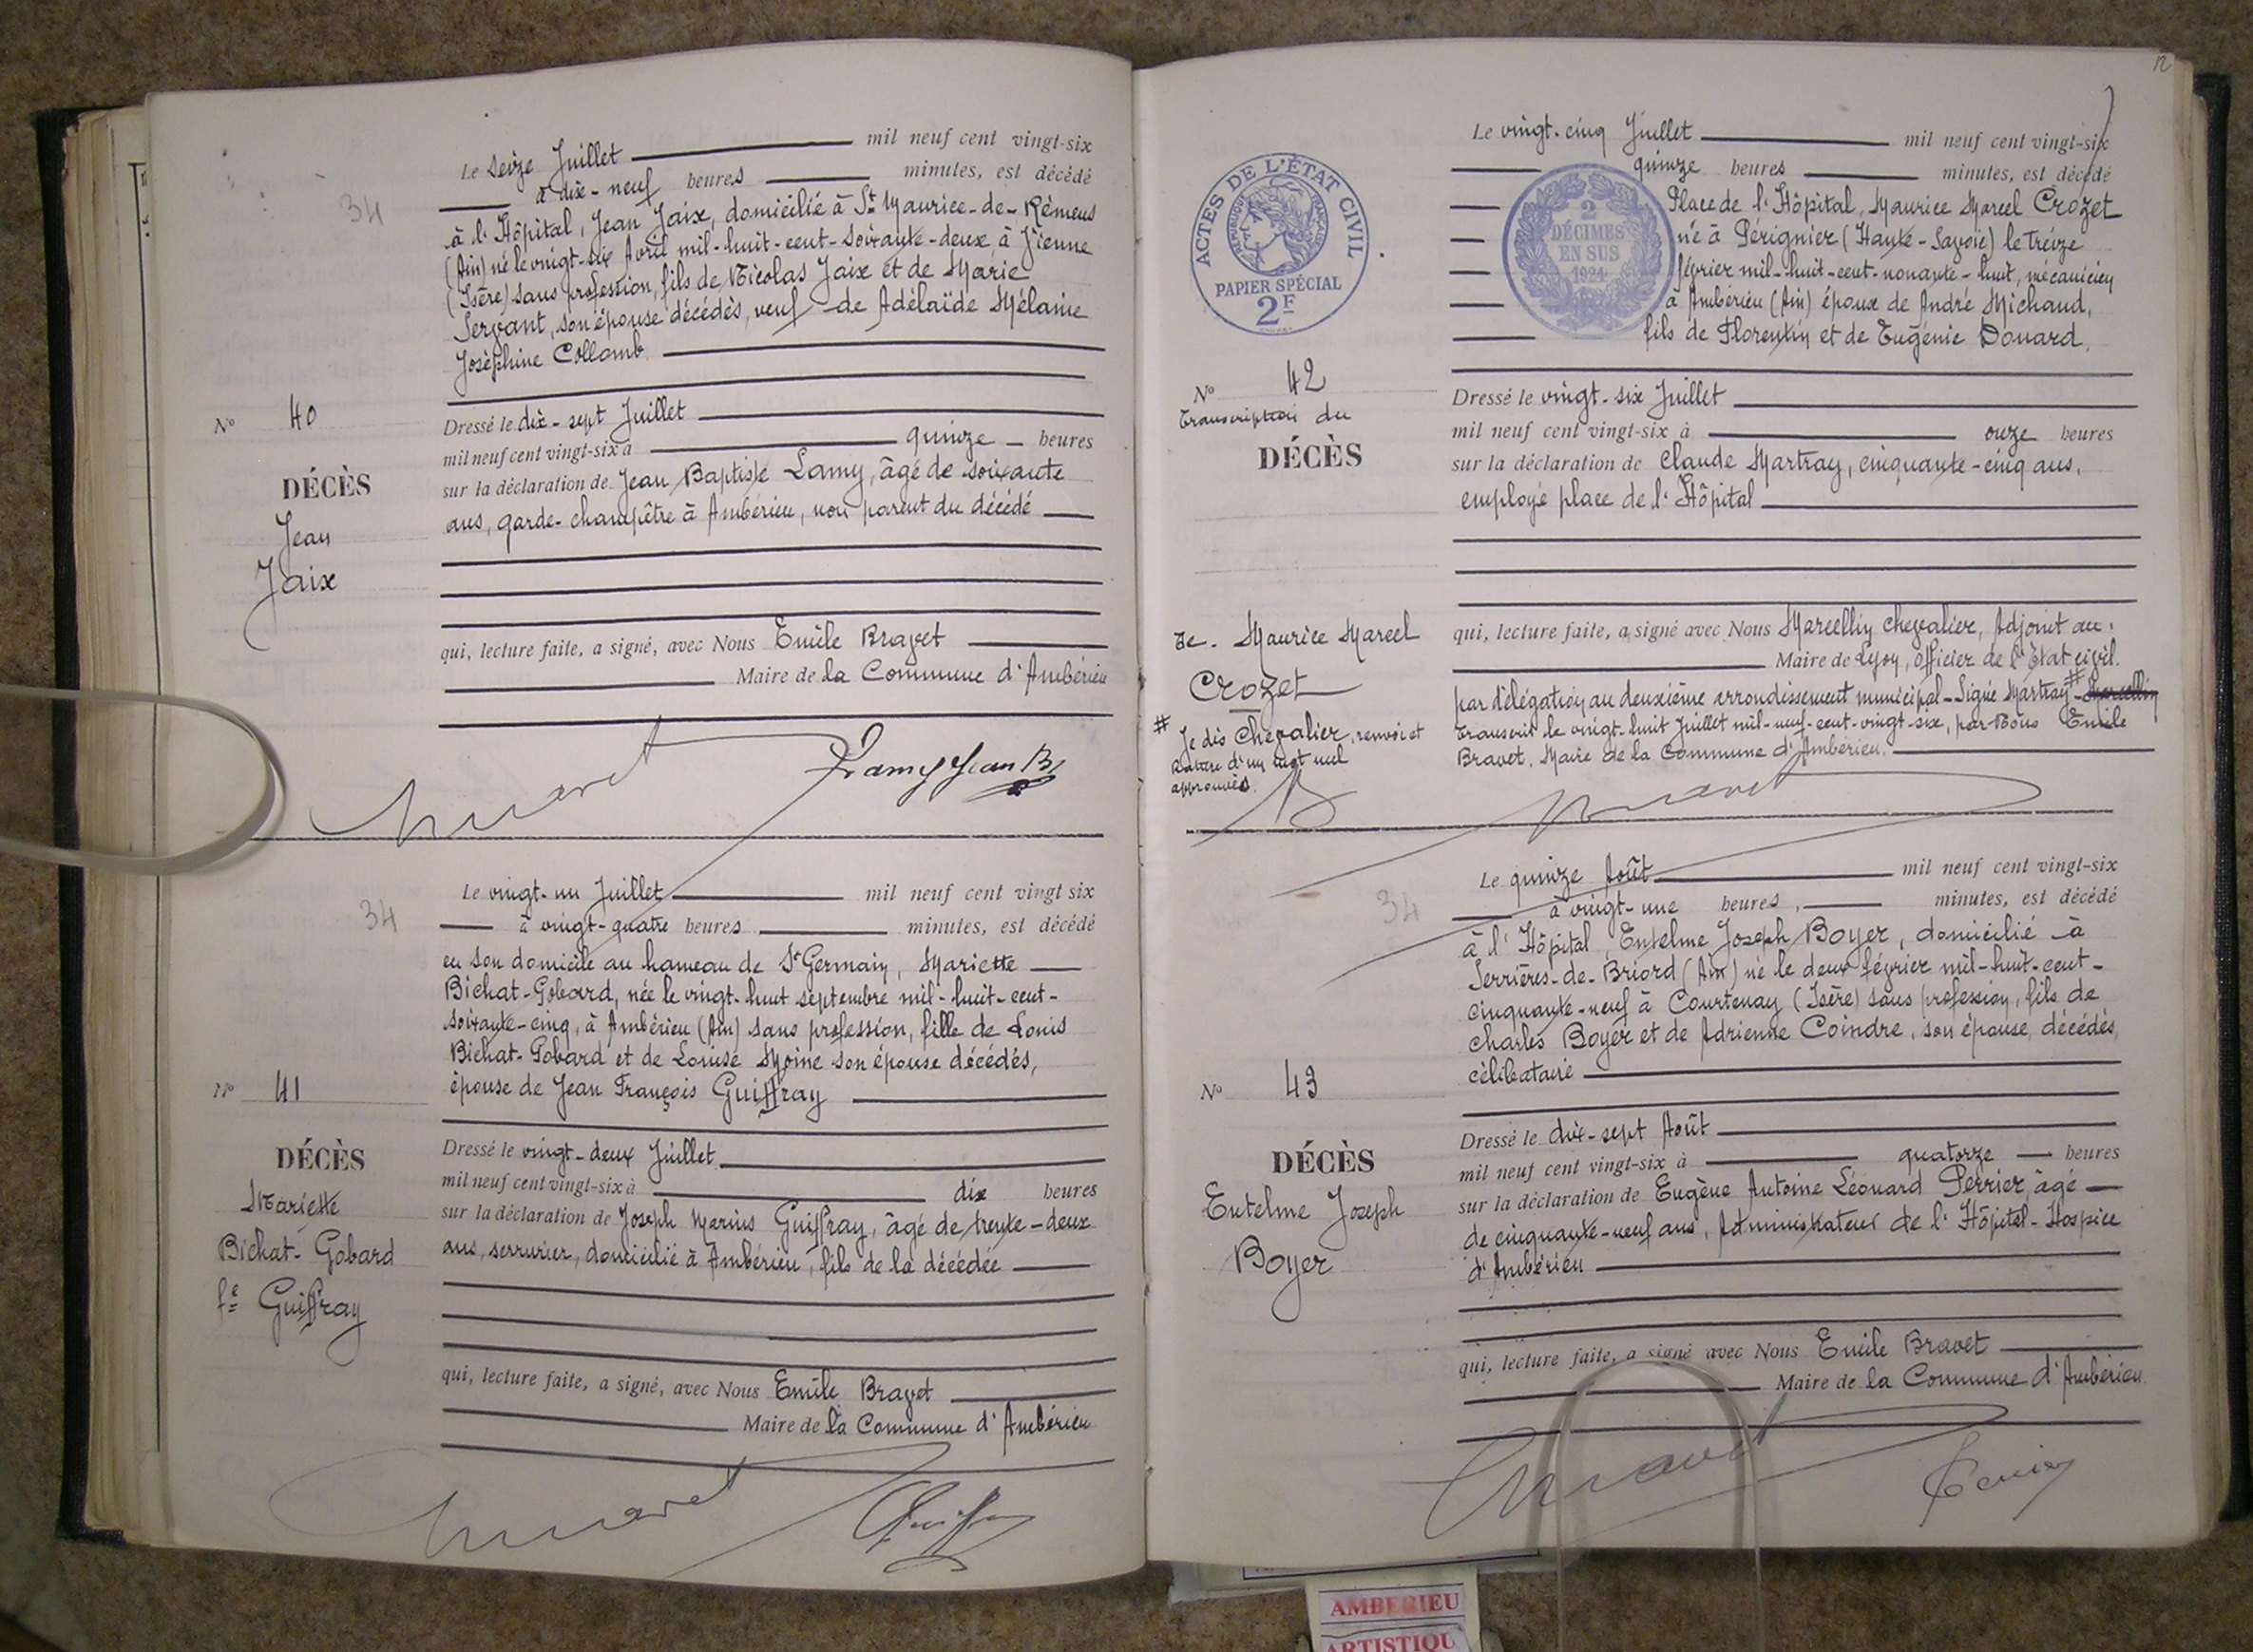 34
Le seize Juillet mil neuf cent vingt-six
à dix-neuf heures minutes, est décédé
à l'Hôpital, Jean Jaix, domicilié à St Maurice-de-Rémens
(Ain) né le vingt-six Avril mil-huit-cent-soixante-deux à Vienne
(Isère) sans profession, fils de Nicolas Jaix et de Marie
Servant, son épouse décédés, veuf de Adélaïde Mélanie
Joséphine Collomb
Nº 40
DÉCÈS
Jean
Jaix
Dressé le dix-sept Juillet
mil neuf cent vingt-six à quinze heures
sur la déclaration de Jean Baptiste Lamy, âgé de soixante
ans, garde-champêtre à Ambérieu, non parent du décédé
qui, lecture faite, a signé, avec Nous Emile Bravet
Maire de la Commune d'Ambérieu
Bravet Lamy Jean B
34
Le vingt-un Juillet mil neuf cent vingt six
à vingt-quatre heures minutes, est décédé
en son domicile au hameau de St Germain, Mariette
Bichat-Gobard, née le vingt-huit septembre mil-huit-cent-
soixante-cinq, à Ambérieu (Ain) sans profession, fille de Louis
Bichat-Gobard et de Louise Moine son épouse décédés,
épouse de Jean François Guiffray
Nº 41
DÉCÈS
Mariette
Bichat-Gobard
fe Guiffray
Dressé le vingt-deux Juillet
mil neuf cent vingt-six à dix heures
sur la déclaration de Joseph Marius Guiffray, âgé de trente-deux
ans, serrurier, domicilié à Ambérieu, fils de la décédée
qui, lecture faite, a signé, avec Nous Emile Bravet
Maire de la Commune d'Ambérieu
Bravet Guiffray
12
ACTES DE L'ÉTAT CIVIL
RÉPUBLIQUE FRANÇAISE
PAPIER SPÉCIAL
2F
2
DÉCIMES
EN SUS
1924
Le vingt-cinq Juillet mil neuf cent vingt-six
quinze heures minutes, est décédé
Place de l'Hôpital, Maurice Marcel Crozet
né à Pérignier (Haute-Savoie) le treize
février mil-huit-cent-nonante-huit, mécanicien
à Ambérieu (Ain) époux de André Michaud,
fils de Florentin et de Eugénie Douard.
Nº 42
Transcription du
DÉCÈS
de. Maurice Marcel
Crozet
# Je dis Chevalier, renvoi et
Rature d'un mot nul
approuvés.
B
Dressé le vingt-six Juillet
mil neuf cent vingt-six à onze heures
sur la déclaration de Claude Martray, cinquante-cinq ans,
employé place de l'Hôpital
qui, lecture faite, a signé avec Nous Marcellin Chevalier, Adjoint au
Maire de Lyon, officier de l'état civil.
par délégation au deuxième arrondissement municipal-Signé Martray-# Marcellin
Transcrit le vingt-huit Juillet mil-neuf-cent-vingt-six, par Nous Emile
Bravet, Maire de la Commune d'Ambérieu.
Bravet
34
Le quinze Août mil neuf cent vingt-six
à vingt-une heures, minutes, est décédé
à l'Hôpital, Entelme Joseph Boyer, domicilié à
Serrières-de-Briord (Ain) né le deux février mil-huit-cent-
cinquante-neuf à Courtenay (Isère) sans profession, fils de
Charles Boyer et de Adrienne Coindre, son épouse, décédés,
célibataire
Nº 43
DÉCÈS
Entelme Joseph
Boyer
Dressé le dix-sept Août
mil neuf cent vingt-six à quatorze heures
sur la déclaration de Eugène Antoine Léonard Perrier, âgé
de cinquante-neuf ans, Administrateur de l'Hôpital-Hospice
d'Ambérieu
qui, lecture faite, a signé avec Nous Emile Bravet
Maire de la Commune d'Ambérieu
Bravet Perrier
AMBERIEU
ARTISTIQU